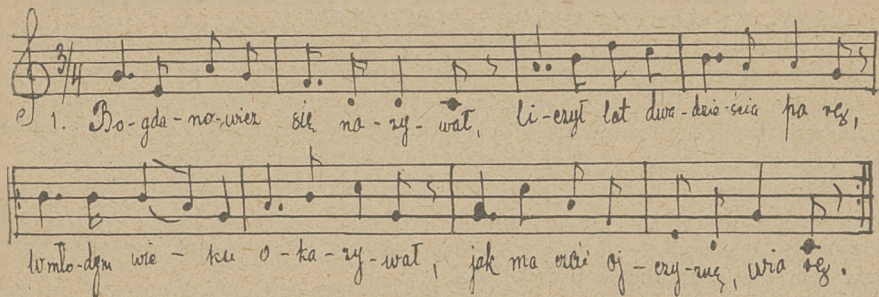 3/4
1. Bo-gda-no-wicz się na-zy-wał, li-czył lat dwa-dzie-ścia pa rę,
W mło-dym wie-ku o-ka-zy-wał, jak ma czcić oj-czy-znę, wia rę.